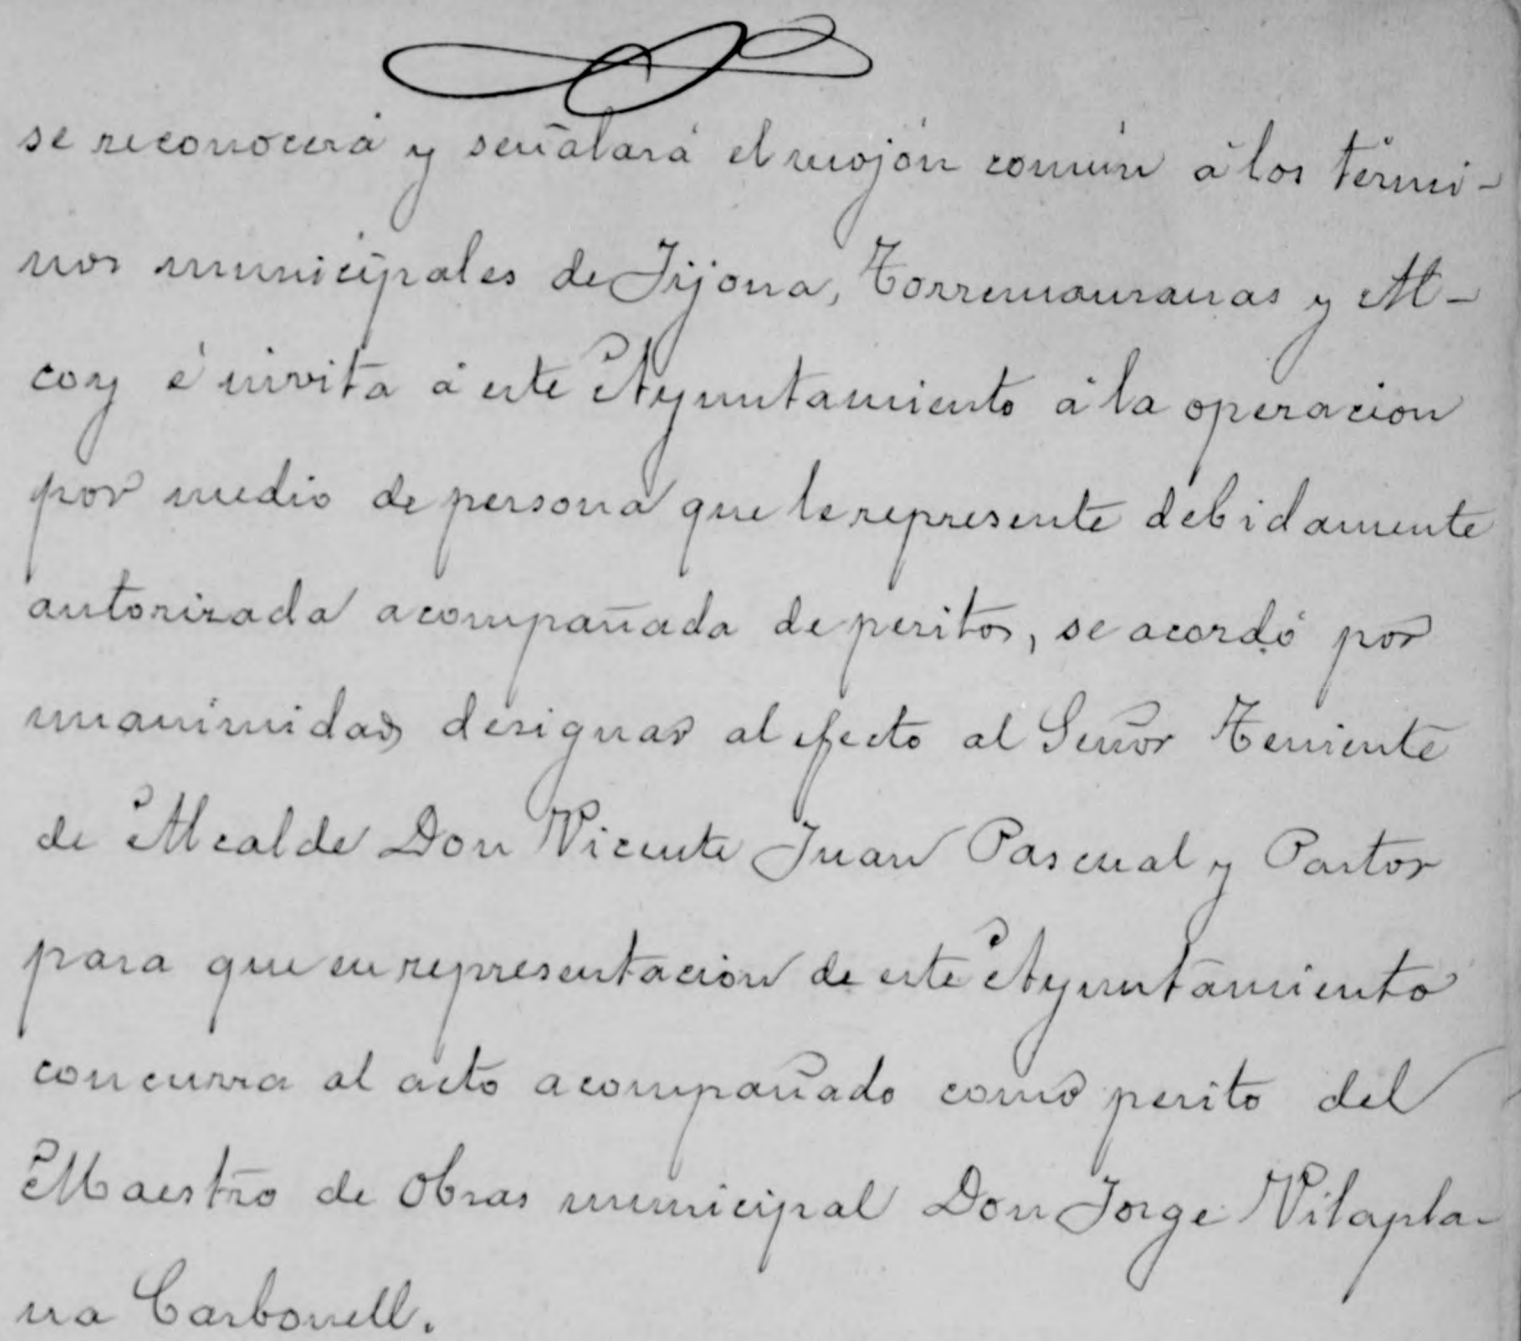 se reconocerá y señalará el mojón común á los térmi-
nos municipales de Jijona, Torremanzanas y Al-
coy é invita á este Ayuntamiento á la operacion
por medio de persona que le represente debidamente
autorizada acompañada de peritos, se acordó por
unanimidad designar al efecto al Señor Teniente
de Alcalde Don Vicente Juan Pascual y Pastor
para que en representacion de este Ayuntamiento
concurra al acto acompañado como perito del
Maestro de Obras municipal Don Jorge Vilapla-
na Carbonell.